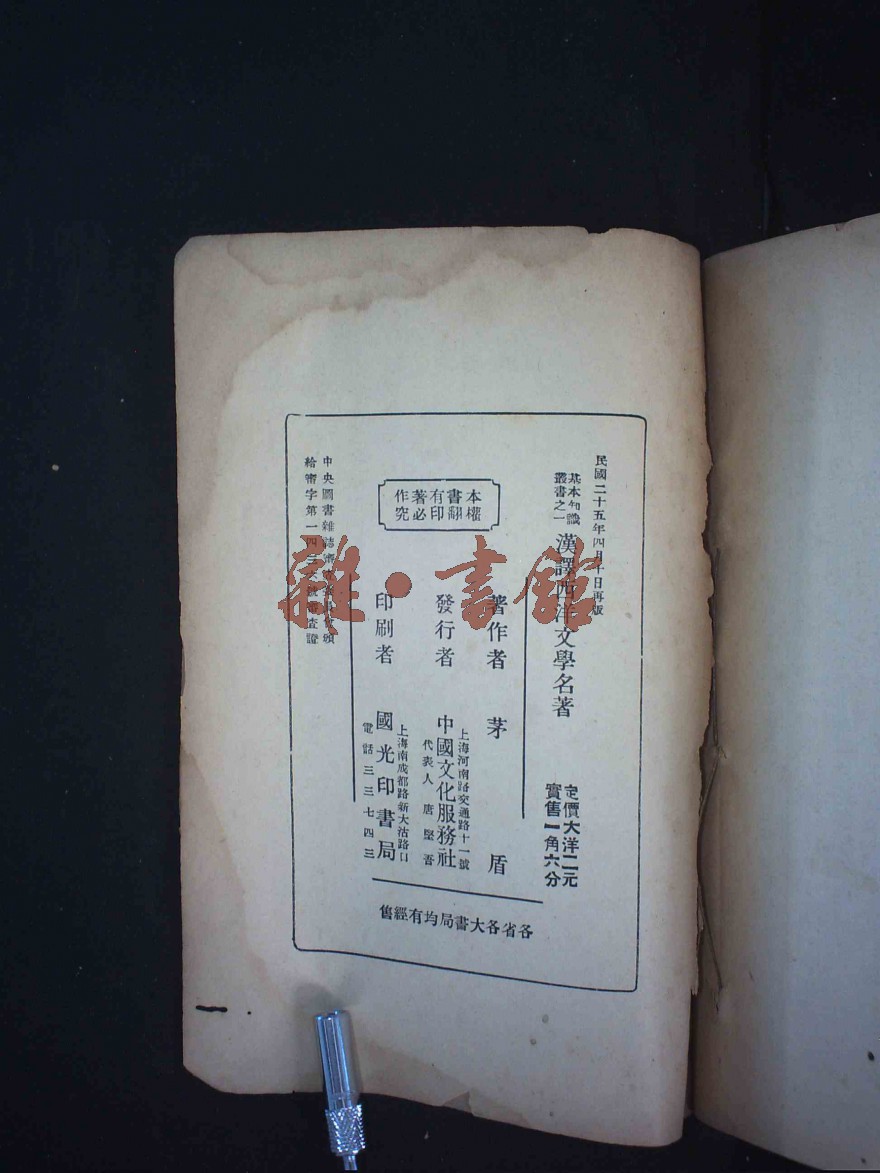 民國二十五年四月十日再版
基本知識
叢書之一
漢譯西洋文學名著
定價大洋二元
實售一角六分
著作者 茅盾
發行者
上海河南路交通路十一號
中國文化服務社
代表人 唐堅吾
印刷者
上海南成都路新大沽路口
國光印書局
電話三三七四三
本書有著作
權翻印必究
中央圖書雜誌審查委員會頒
給審字第一四
號審查證
各省各大書局均有經售
雜·書館